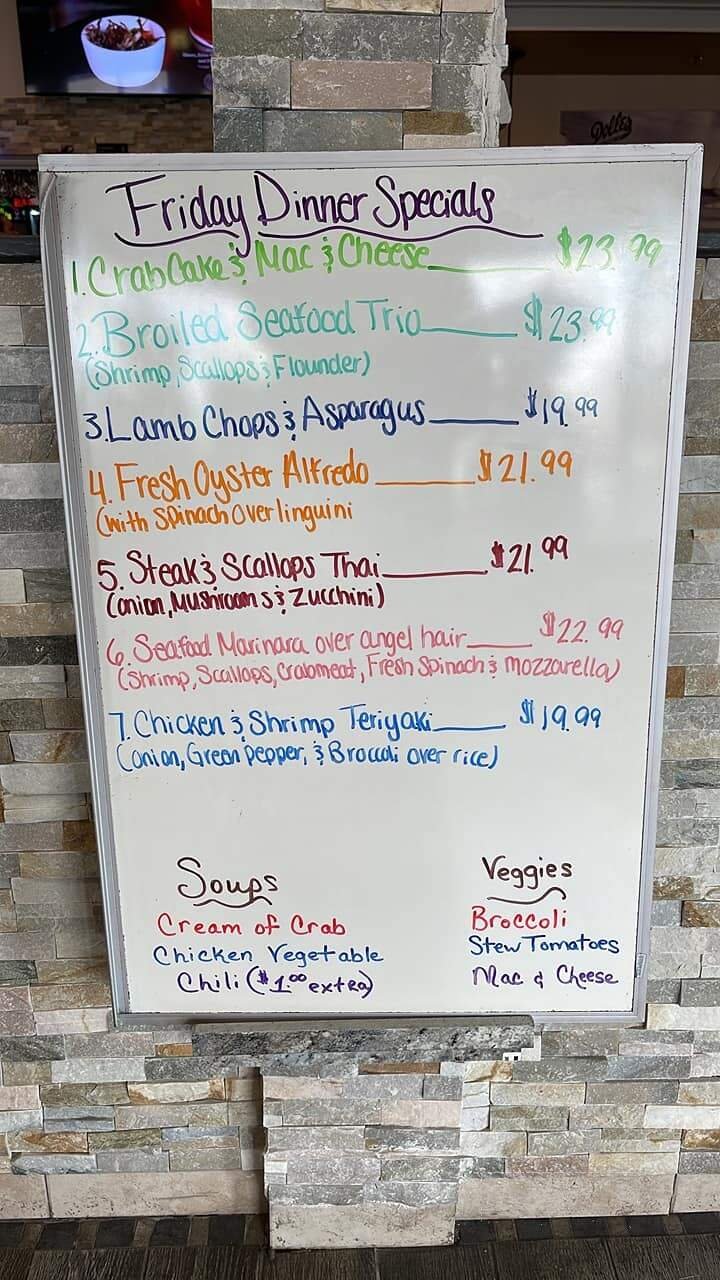 Dolle's
Friday Dinner Specials
1. Crab Cake & Mac & Cheese $23.99
2. Broiled Seafood Trio $23.99
(Shrimp, Scallops & Flounder)
3. Lamb Chops & Asparagus $19.99
4. Fresh Oyster Alfredo $21.99
(with Spinach Over linguini
5. Steak & Scallops Thai $21.99
(onion, Mushrooms & Zucchini)
6. Seafood Marinara over angel hair $22.99
(Shrimp, Scallops, Crabmeat, Fresh Spinach & mozzarella)
7. Chicken & Shrimp Teriyaki $19.99
(onion, Green Pepper, & Broccoli over rice)
Soups
Cream of Crab
Chicken Vegetable
Chili ($1.00 extra)
Veggies
Broccoli
Stew Tomatoes
Mac & Cheese